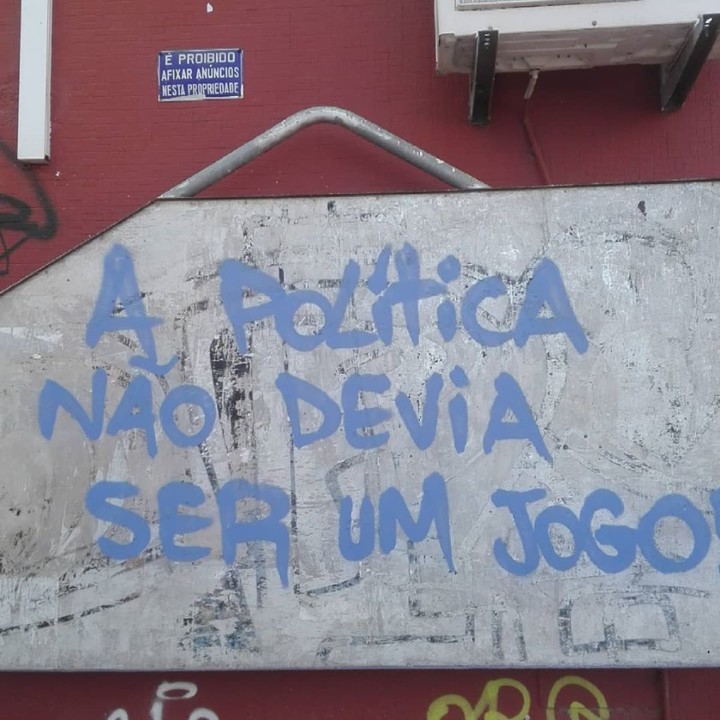 É PROIBIDO
AFIXAR ANÚNCIOS
NESTA PROPRIEDADE
A POLÍTICA
NÃO DEVIA
SER UM JOGO!